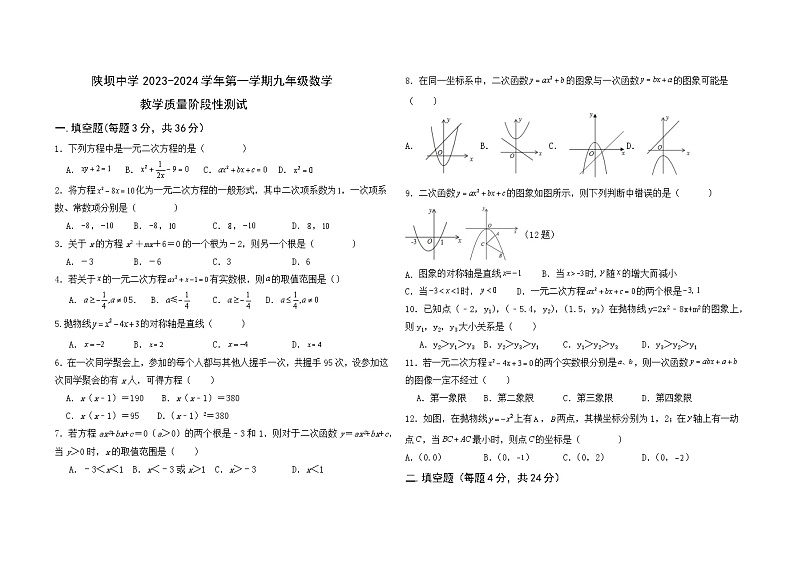 陕坝中学2023-2024学年第一学期九年级数学
教学质量阶段性测试
一.填空题(每题3分，共36分)
1．下列方程中是一元二次方程的是（　　）
A．xy+2=1　B．x²+1/2x-9=0　C．ax²+bx+c=0　D．x²=0
2．将方程x²-8x=10化为一元二次方程的一般形式，其中二次项系数为1，一次项系
数、常数项分别是（　　）
A．-8，-10　B．-8，10　C．8，-10　D．8，10
3．关于x的方程x²+mx+6=0的一个根为-2，则另一个根是（　　）
A．-3　B．-6　C．3　D．6
4．若关于x的一元二次方程ax²+x-1=0有实数根，则a的取值范围是()
A．a≥-1/4,a≠05．　B．a≤-1/4　C．a≥-1/4　D．a≤1/4,a≠0
5.抛物线y=x²-4x+3的对称轴是直线（　　）
A．x=-2　B．x=2　C．x=-4　D．x=4
6．在一次同学聚会上，参加的每个人都与其他人握手一次，共握手95次，设参加这
次同学聚会的有x人，可得方程（　　）
A．x（x-1）=190　B．x（x-1）=380
C．x（x-1）=95　D．(x-1)²=380
7．若方程ax²+bx+c=0（a>0）的两个根是-3和1，则对于二次函数y=ax²+bx+c，
当y>0时，x的取值范围是（　　）
A．-3<x<1　B．x<-3或x>1　C．x>-3　D．x<1
8．在同一坐标系中，二次函数y=ax²+b的图象与一次函数y=bx+a的图象可能是
（　　）
A．　B．　C．　D．
9．二次函数y=ax²+bx+c的图象如图所示，则下列判断中错误的是（　　）
（12题）
A．图象的对称轴是直线x=-1　B．当x>-3时，y随x的增大而减小
C．当-3<x<1时，y<0　D．一元二次方程ax²+bx+c=0的两个根是-3，1
10．已知点（-2，y₁），（-5.4，y₂），（1.5，y₃）在抛物线y=2x²-8x+m²的图象上，
则y₁，y₂，y₃大小关系是（　　）
A．y₂>y₁>y₃　B．y₂>y₃>y₁　C．y₁>y₂>y₃　D．y₃>y₂>y₁
11．若一元二次方程x²-4x+3=0的两个实数根分别是a、b，则一次函数y=abx+a+b
的图像一定不经过（　　）
A．第一象限　B．第二象限　C．第三象限　D．第四象限
12．如图，在抛物线y=-x²上有A，B两点，其横坐标分别为1，2；在y轴上有一动
点C，当BC+AC最小时，则点C的坐标是（　　）
A．(0.0)　B．(0，-1)　C．(0，2)　D．(0，-2)
二.填空题（每题4分，共24分）